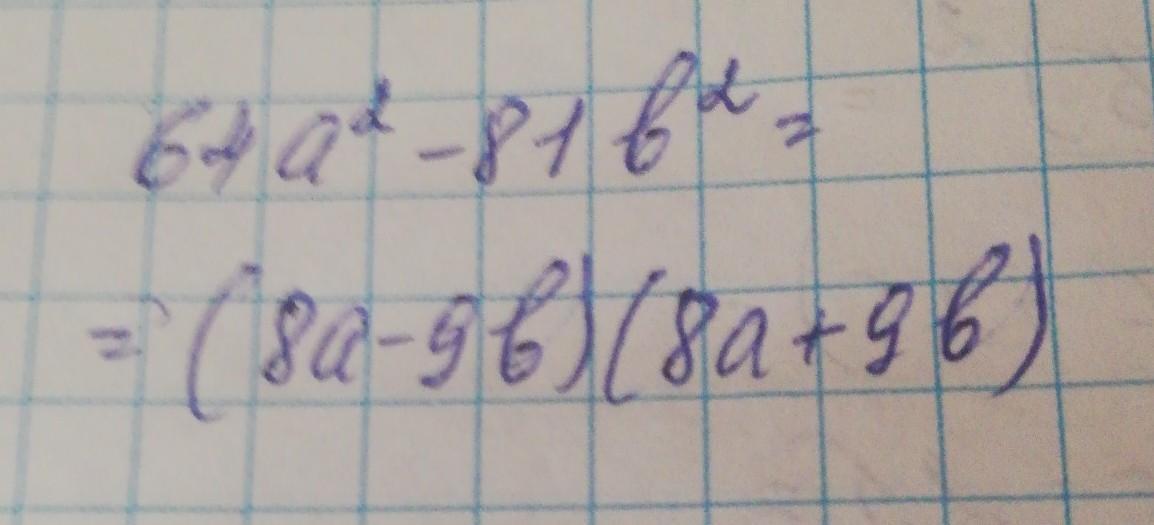 64a² - 81b² =
= (8a - 9b)(8a + 9b)